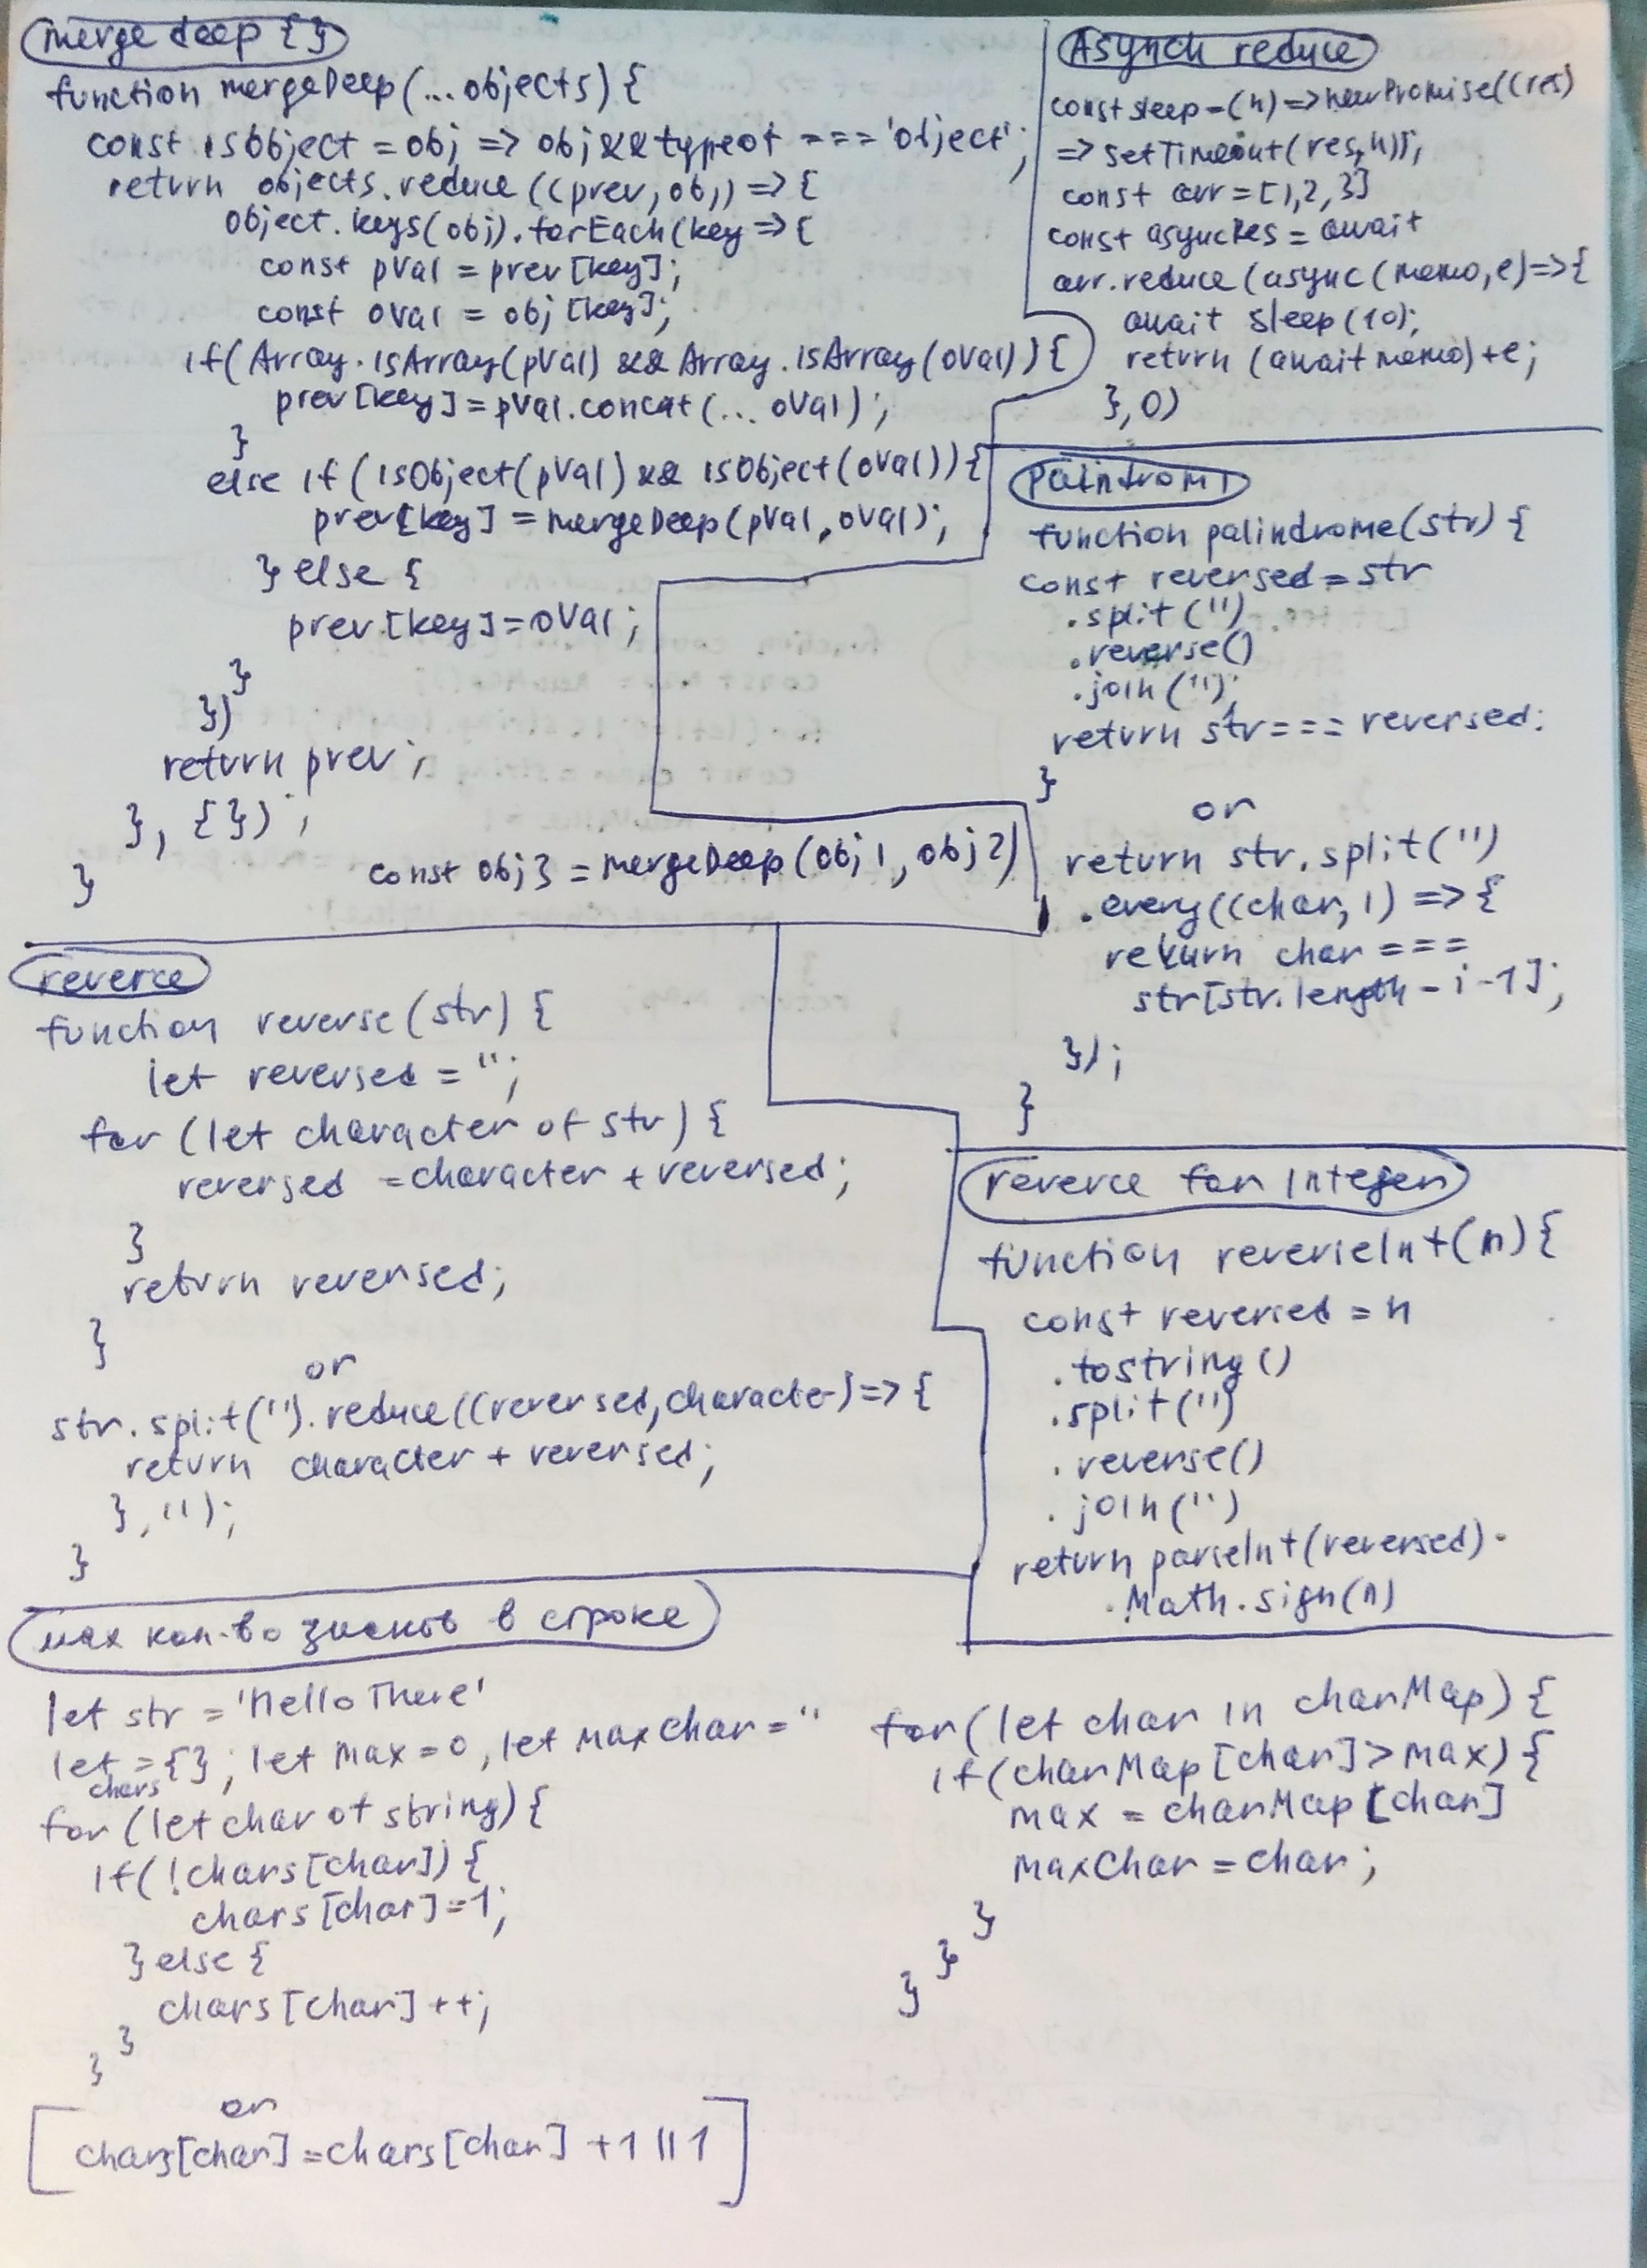 merge deep {}
function mergeDeep(...objects) {
const isObject = obj => obj && typeof === 'object';
return objects.reduce((prev, obj) => {
Object.keys(obj).forEach(key => {
const pVal = prev[key];
const oVal = obj[key];
if(Array.isArray(pVal) && Array.isArray(oVal)) {
prev[key] = pVal.concat(...oVal);
}
else if (isObject(pVal) && isObject(oVal)) {
prev[key] = mergeDeep(pVal, oVal);
} else {
prev[key] = oVal;
}
})
return prev;
}, {});
}
const obj3 = mergeDeep(obj1, obj2)
Asynch reduce
const sleep = (n) => new Promise((res)
=> setTimeout(res, n));
const arr = [1,2,3]
const asyncRes = await
arr.reduce(async (memo, e) => {
await sleep(10);
return (await memo) + e;
}, 0)
palindrom
function palindrome(str) {
const reversed = str
.split('')
.reverse()
.join('');
return str === reversed;
}
or
return str.split('')
.every((char, i) => {
return char ===
str[str.length - i - 1];
});
}
reverce
function reverse(str) {
let reversed = '';
for (let character of str) {
reversed = character + reversed;
}
return reversed;
}
or
str.split('').reduce((reversed, character) => {
return character + reversed;
}, '');
}
reverce for integer
function reverseInt(n) {
const reversed = n
.toString()
.split('')
.reverse()
.join('')
return parseInt(reversed) ·
· Math.sign(n)
мах кол-во знаков в строке
let str = 'Hello There'
let chars = {}; let max = 0, let maxchar = ''
for (let char of string) {
if(!chars[char]) {
chars[char] = 1;
} else {
chars[char]++;
}
}
or
[chars[char] = chars[char] + 1 || 1]
for (let char in charMap) {
if(charMap[char] > max) {
max = charMap[char]
maxChar = char;
}
}
}